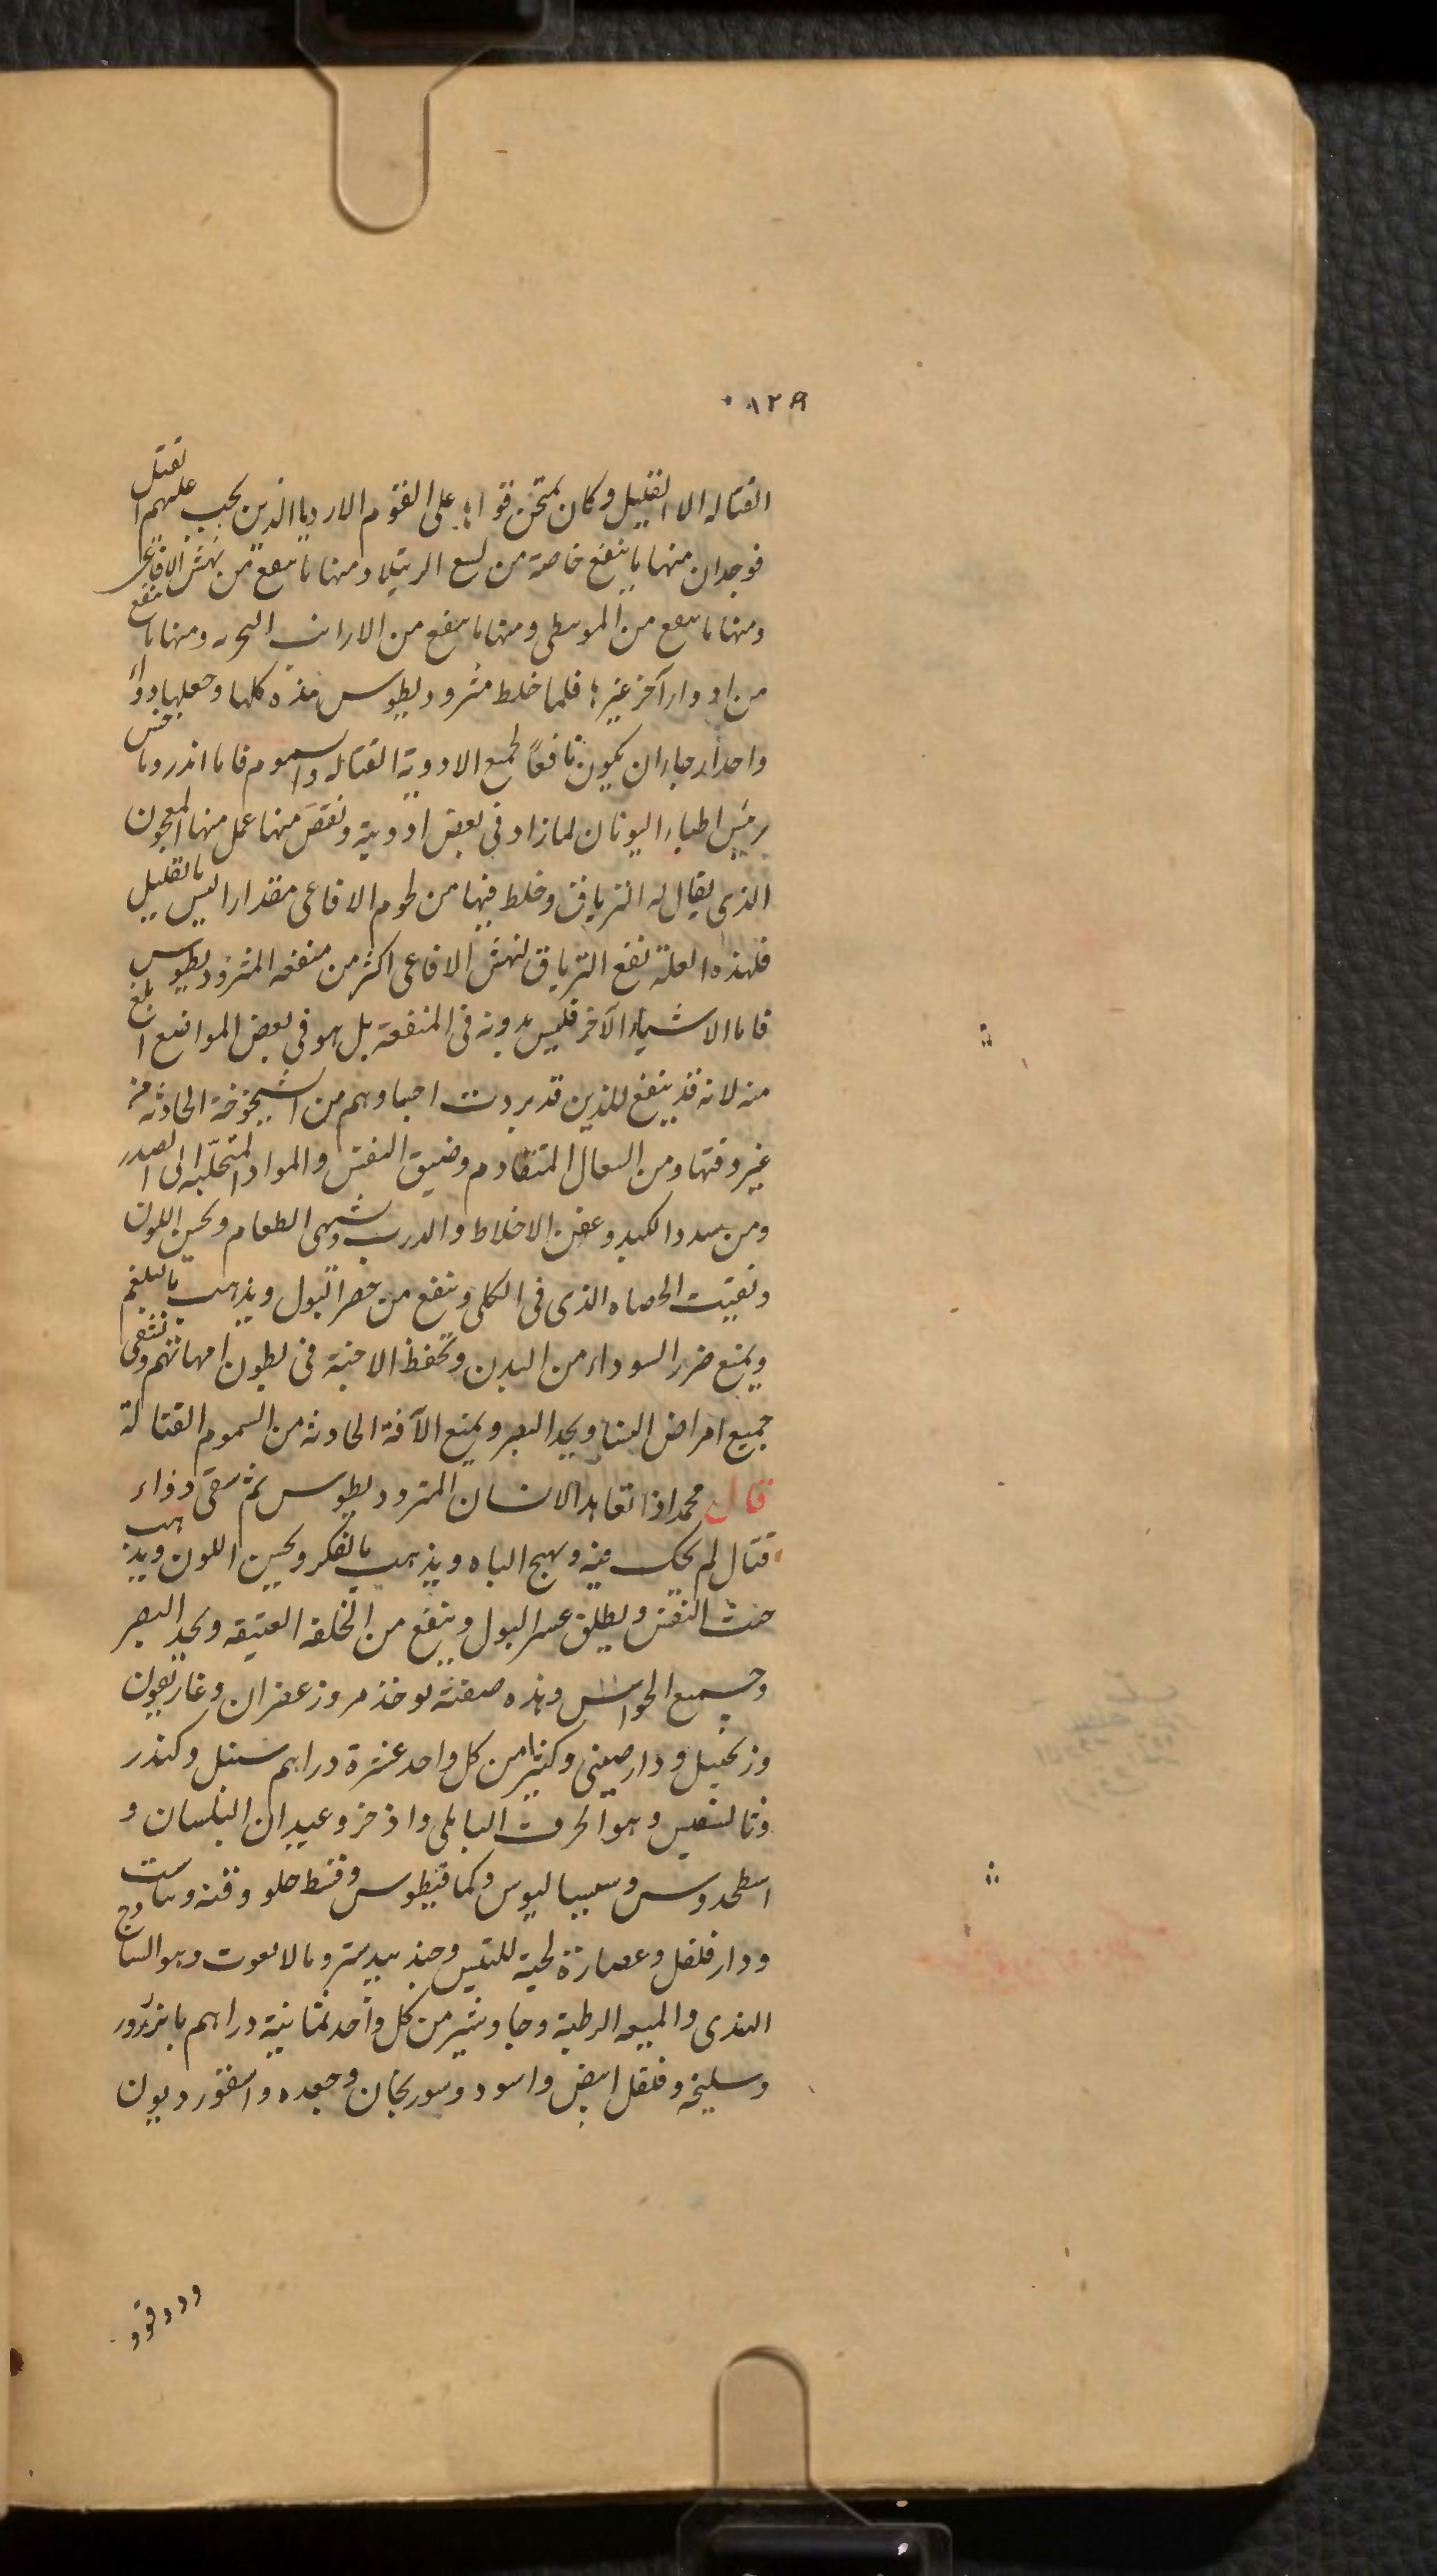 ١٢٩
القتاله الا القليل وكان يمتحن قواها على القوم الارديا الذين يجب عليهم القتل
فوجدان منها ما ينفع خاصة من لسع الرتيلا ومنها ما ينفع من نهش الافاعى
ومنها ما ينفع من الموسطى ومنها ما ينفع من الارانب البحريه ومنها ما ينفع
من ادوار آخر غيرها فلما خلط مثروديطوس هذه كلها وجعلها دواء
واحدا رجا ان يكون نافعًا لجميع الادوية القتاله والسموم فاما اندروماخس
رئيس اطباء اليونان لما زاد فى بعض ادوية ونقص منها عمل منها المعجون
الذى يقال له الترياق وخلط فيها من لحوم الافاعى مقدارا ليس بالقليل
فلهذه العلة نفع الترياق لنهش الافاعى اكثر من منفعه المثروديطوس
فاما الاشياء الآخر فليس بدونه فى المنفعة بل هو فى بعض المواضع ابلغ
منه لانه قد ينفع للذين قد بردت اجسادهم من الشيخوخة الحادثه من
غير وقتها ومن السعال المتقادم وضيق النفس والمواد المتحلّبه الى الصدر
ومن سدد الكبد وعفن الاخلاط والدرب وشهى الطعام ويحسن اللون
وتفتيت الحصاه الذى فى الكلى وينفع من حصر البول ويذهب بالبلغم
ويمنع ضرر السوداء من البدن وتحفظ الاجنة فى بطون امهاتهم وتشفى
جميع امراض النساء ويحد البصر ويمنع الآفة الحادثه من السموم القتالة
قال محمد اذا تعاهد الانسان المثروديطوس ثم سقى دواء
قتال لم يحك فيه ويهيج الباه ويذهب بالفكر ويحسن اللون ويذهب
خبث النفس ويطلق عسر البول وينفع من الخلفه العتيقه ويحد البصر
وجميع الحواس وهذه صفته يوخذ مر وزعفران وغاريقون
وزنجبيل ودارصينى وكثيرا من كل واحد عشرة دراهم سنبل وكندر
وثالسفيس وهو الحرف البابلى واذخر وعيدان البلسان و
اسطوخدوس وسيساليوس وكمافيطوس وقسط حلو وقنه وساست
ودارفلفل وعصارة لحية للتيس وجندبيدستر ومالابعوت وهو الساذج
الهندى والميعه الرطبة وجاوشير من كل واحد ثمانية دراهم بابزرور
وسليخه وفلفل ابيض واسود وسورنجان وجعده واسقورديون
ودوقو